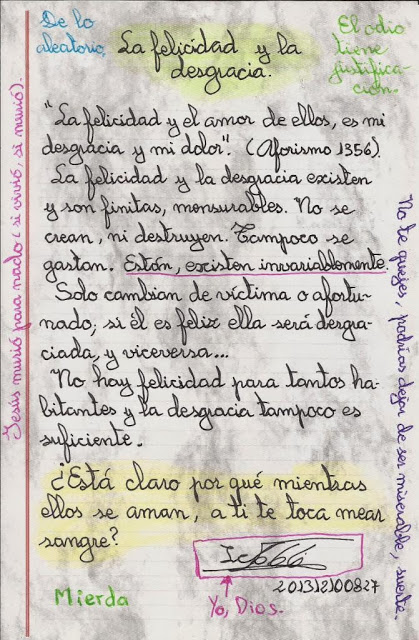 De lo
aleatorio,
La felicidad y la
desgracia.
El odio
tiene
justifica-
ción.
"La felicidad y el amor de ellos, es mi
desgracia y mi dolor". (Aforismo 1356).
La felicidad y la desgracia existen
y son finitas, mensurables. No se
crean, ni destruyen. Tampoco se
gastan. Están, existen invariablemente.
Solo cambian de víctima o afortu-
nado; si él es feliz ella será desgra-
ciada, y viceversa...
No hay felicidad para tantos ha-
bitantes y la desgracia tampoco es
suficiente.
¿Está claro por qué mientras
ellos se aman, a ti te toca mear
sangre?
Ic666
201312100827
Yo, Dios.
Mierda
Jesús murió para nado (si vivió, se murió).
No te quejes, podrías dejar de ser miserable, suerte.